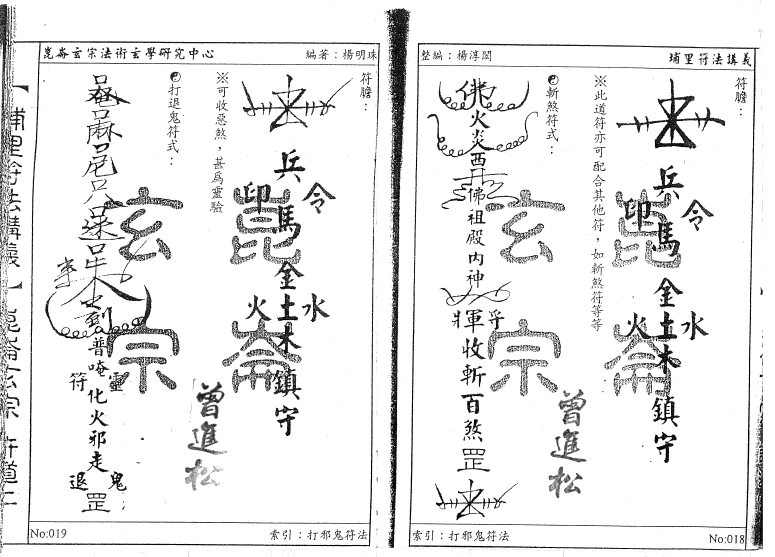 埔里符法講義
整編：楊淳閎
符膽：
兵馬金土木鎮守
令
印
水
火
※此道符亦可配合其他符，如斬煞符等等
斬煞符式：
佛火炎西
佛祖殿內神
收斬百煞罡
崑崙
玄宗
曾進松
索引：打邪鬼符法
No:018
崑崙玄宗法術玄學研究中心
編著：楊明珠
符膽：
兵馬金土木鎮守
令
印
水
火
※可收惡煞，甚為靈驗
打退鬼符式：
普唵化火邪走罡
靈
符
鬼
退
崑崙
玄宗
曾進松
索引：打邪鬼符法
No:019
【埔里符法講義】崑崙玄宗